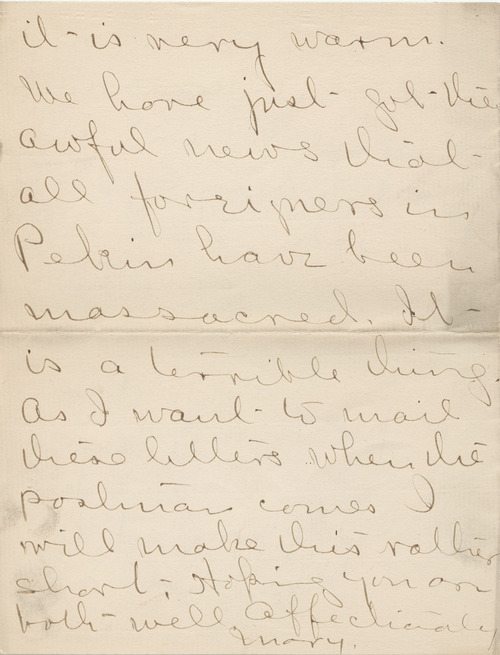 it is very warm.
We have just got the
awful news that
all foreigners in
Pekin have been
massacred. It
is a terrible thing.
As I want to mail
these letters when the
postman comes I
will make this rather
short; Hoping you are
both well, Affectionately
Mary.